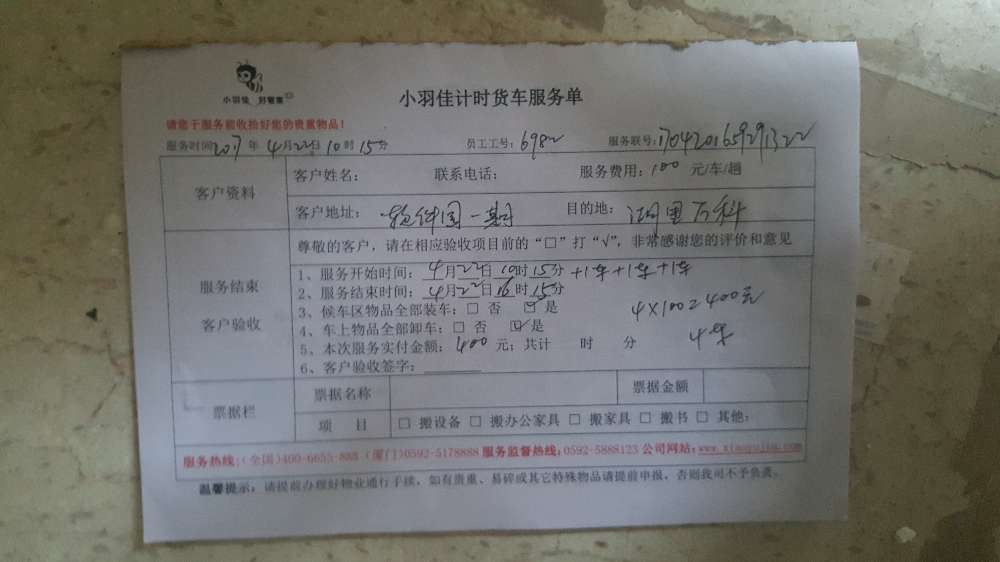 小羽佳 好管家
小羽佳计时货车服务单
请您于服务前收拾好您的贵重物品！
服务时间2017年4月22日10时15分 员工工号：6982 服务联号：
客户资料
客户姓名： 联系电话： 服务费用：100 元/车/趟
客户地址：软件园一期 目的地：湖里万科
服务结束
客户验收
尊敬的客户，请在相应验收项目前的“□”打“√”，非常感谢您的评价和意见
1、服务开始时间：4月22日10时15分 +1车+1车+1车
2、服务结束时间：4月22日16时15分
3、候车区物品全部装车：□ 否 ☑ 是 4×100=400元
4、车上物品全部卸车：□ 否 ☑ 是 4车
5、本次服务实付金额：400 元；共计 时 分
6、客户验收签字：
票据栏
票据名称 票据金额
项 目 □ 搬设备 □ 搬办公家具 □ 搬家具 □ 搬书 □ 其他：
服务热线：（全国）400-6655-888（厦门）0592-5178888 服务监督热线：0592-5888123 公司网站：www.xiaoyujia.com
温馨提示：请提前办理好物业通行手续，如有贵重、易碎或其它特殊物品请提前申报，否则我司不予负责。